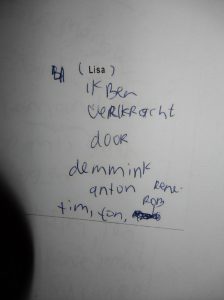 (Lisa)
ik Ben
verkracht
door
demmink
anton Rene-
tim, ton, ROB